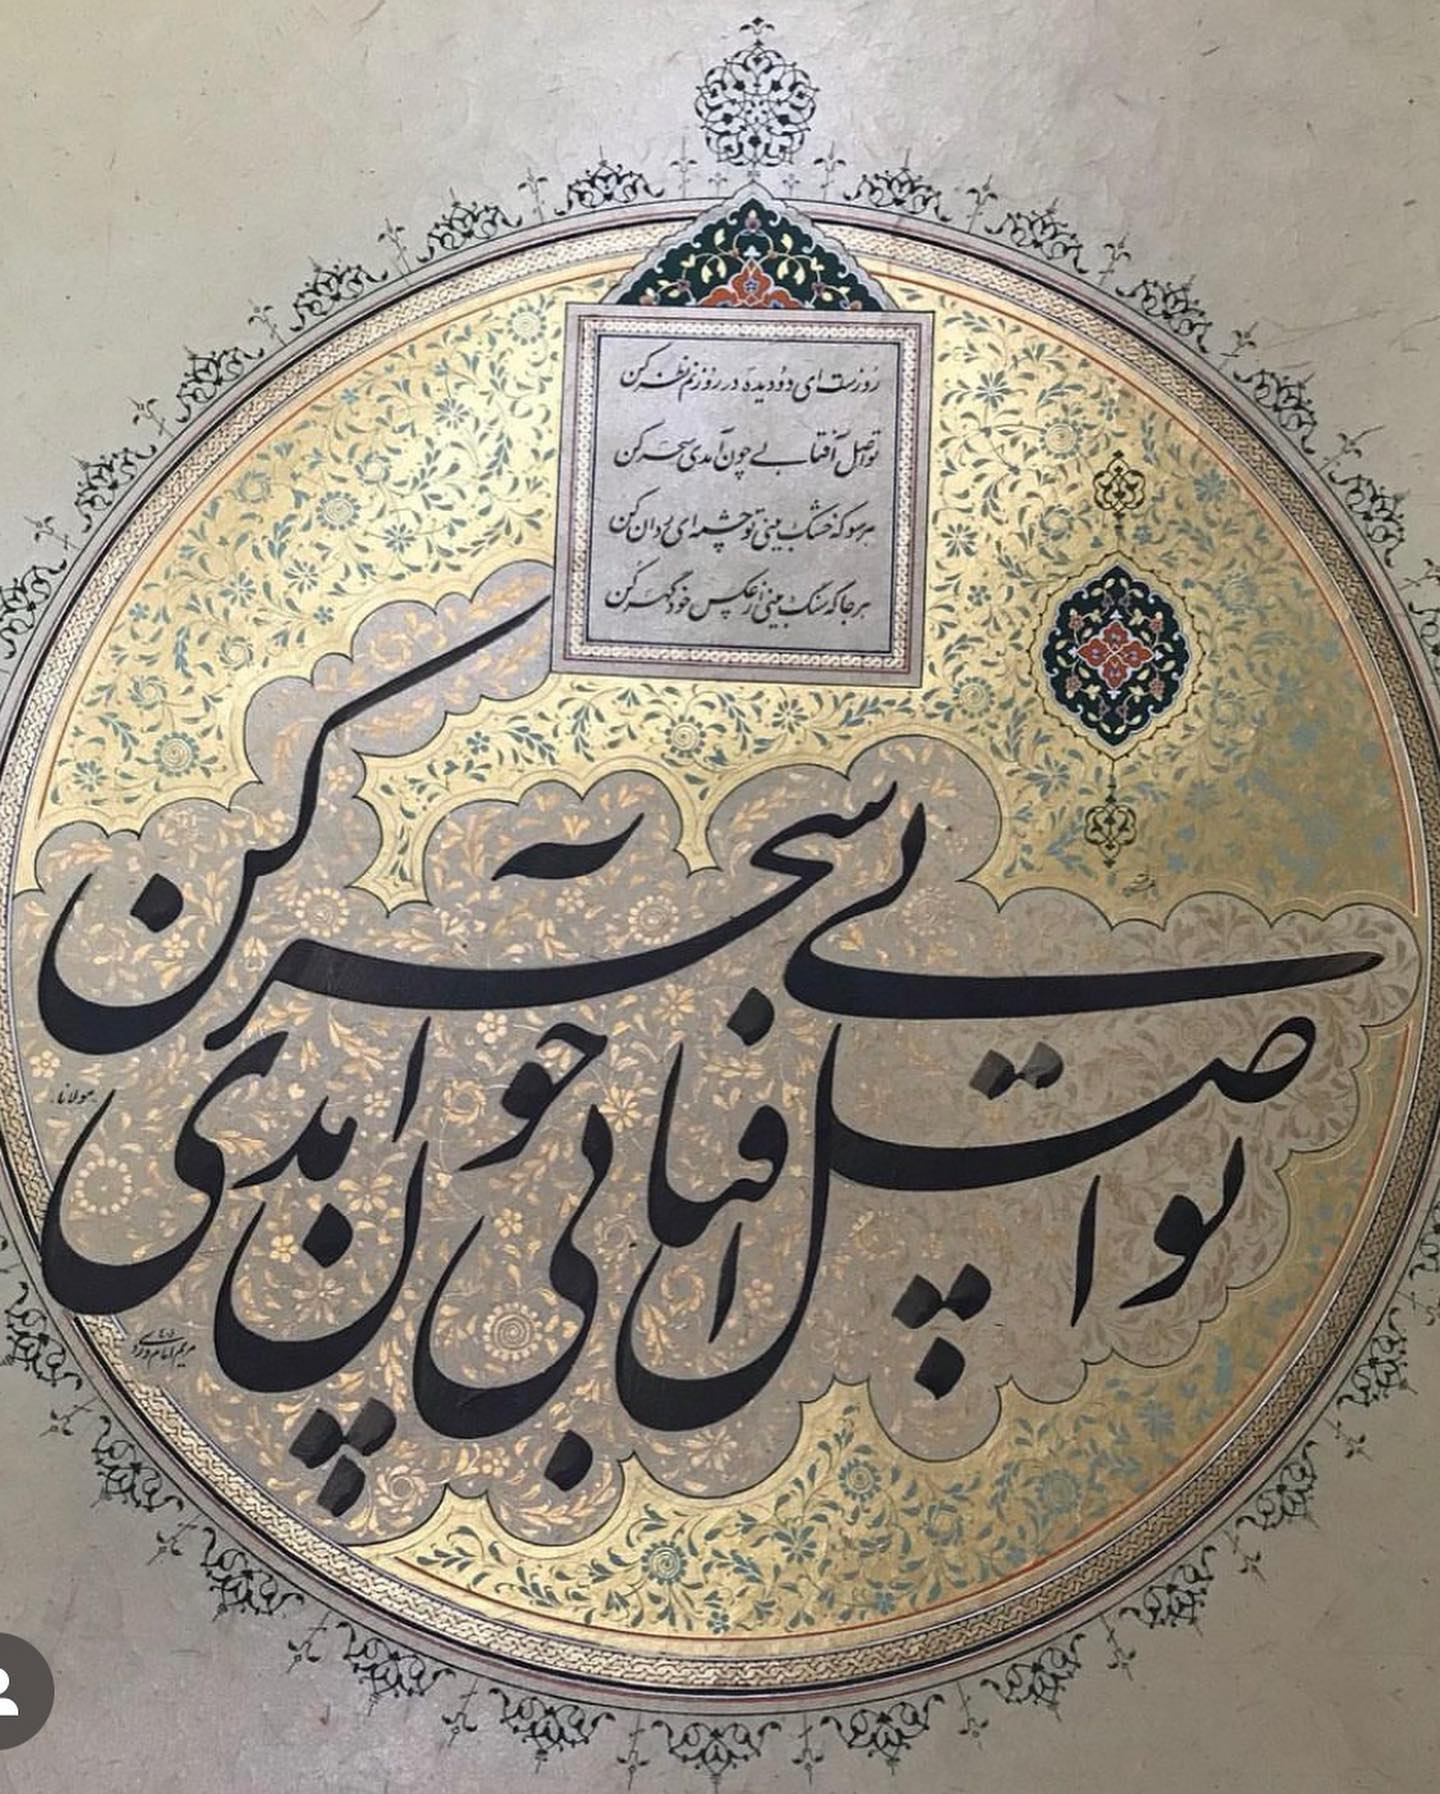 روزست ای دو دیده در روزنم نظر کن
تو اصل آفتابی چون آمدی سحر کن
هر سو که خشک بینی تو چشمه‌ای روان کن
هر جا که سنگ بینی از عکس خود گهر کن
تو اصل آفتابی چون آمدی سحر کن
مولانا
مریم امام وردی